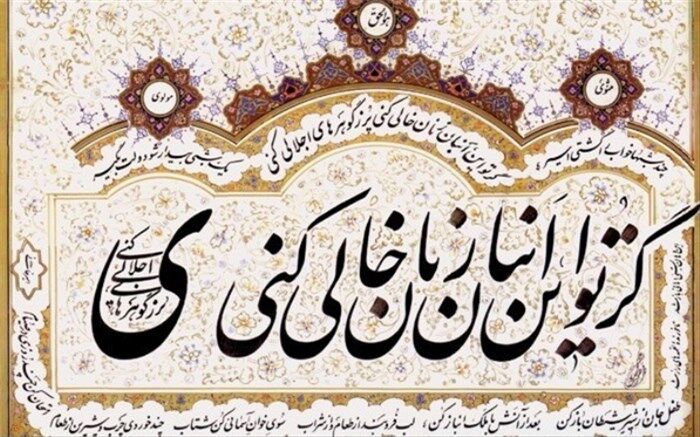 هوالحق
مثنوی
مولوی
چند شبها خواب را گشتی اسیر
گر تو این انبان ز نان خالی کنی پر ز گوهرهای اجلالی کنی
یک شبی بیدار شو دولت بگیر
گر تو این انبان ز نان خالی کنی
پر ز گوهرهای اجلالی کنی
طفل جان از شیر شیطان باز کن بعد از آنش با ملک انباز کن لب فروبند از طعام و از شراب سوی خوان آسمانی کن شتاب چند خوردی چرب و شیرین از طعام
امتحان کن چند روزی در صیام